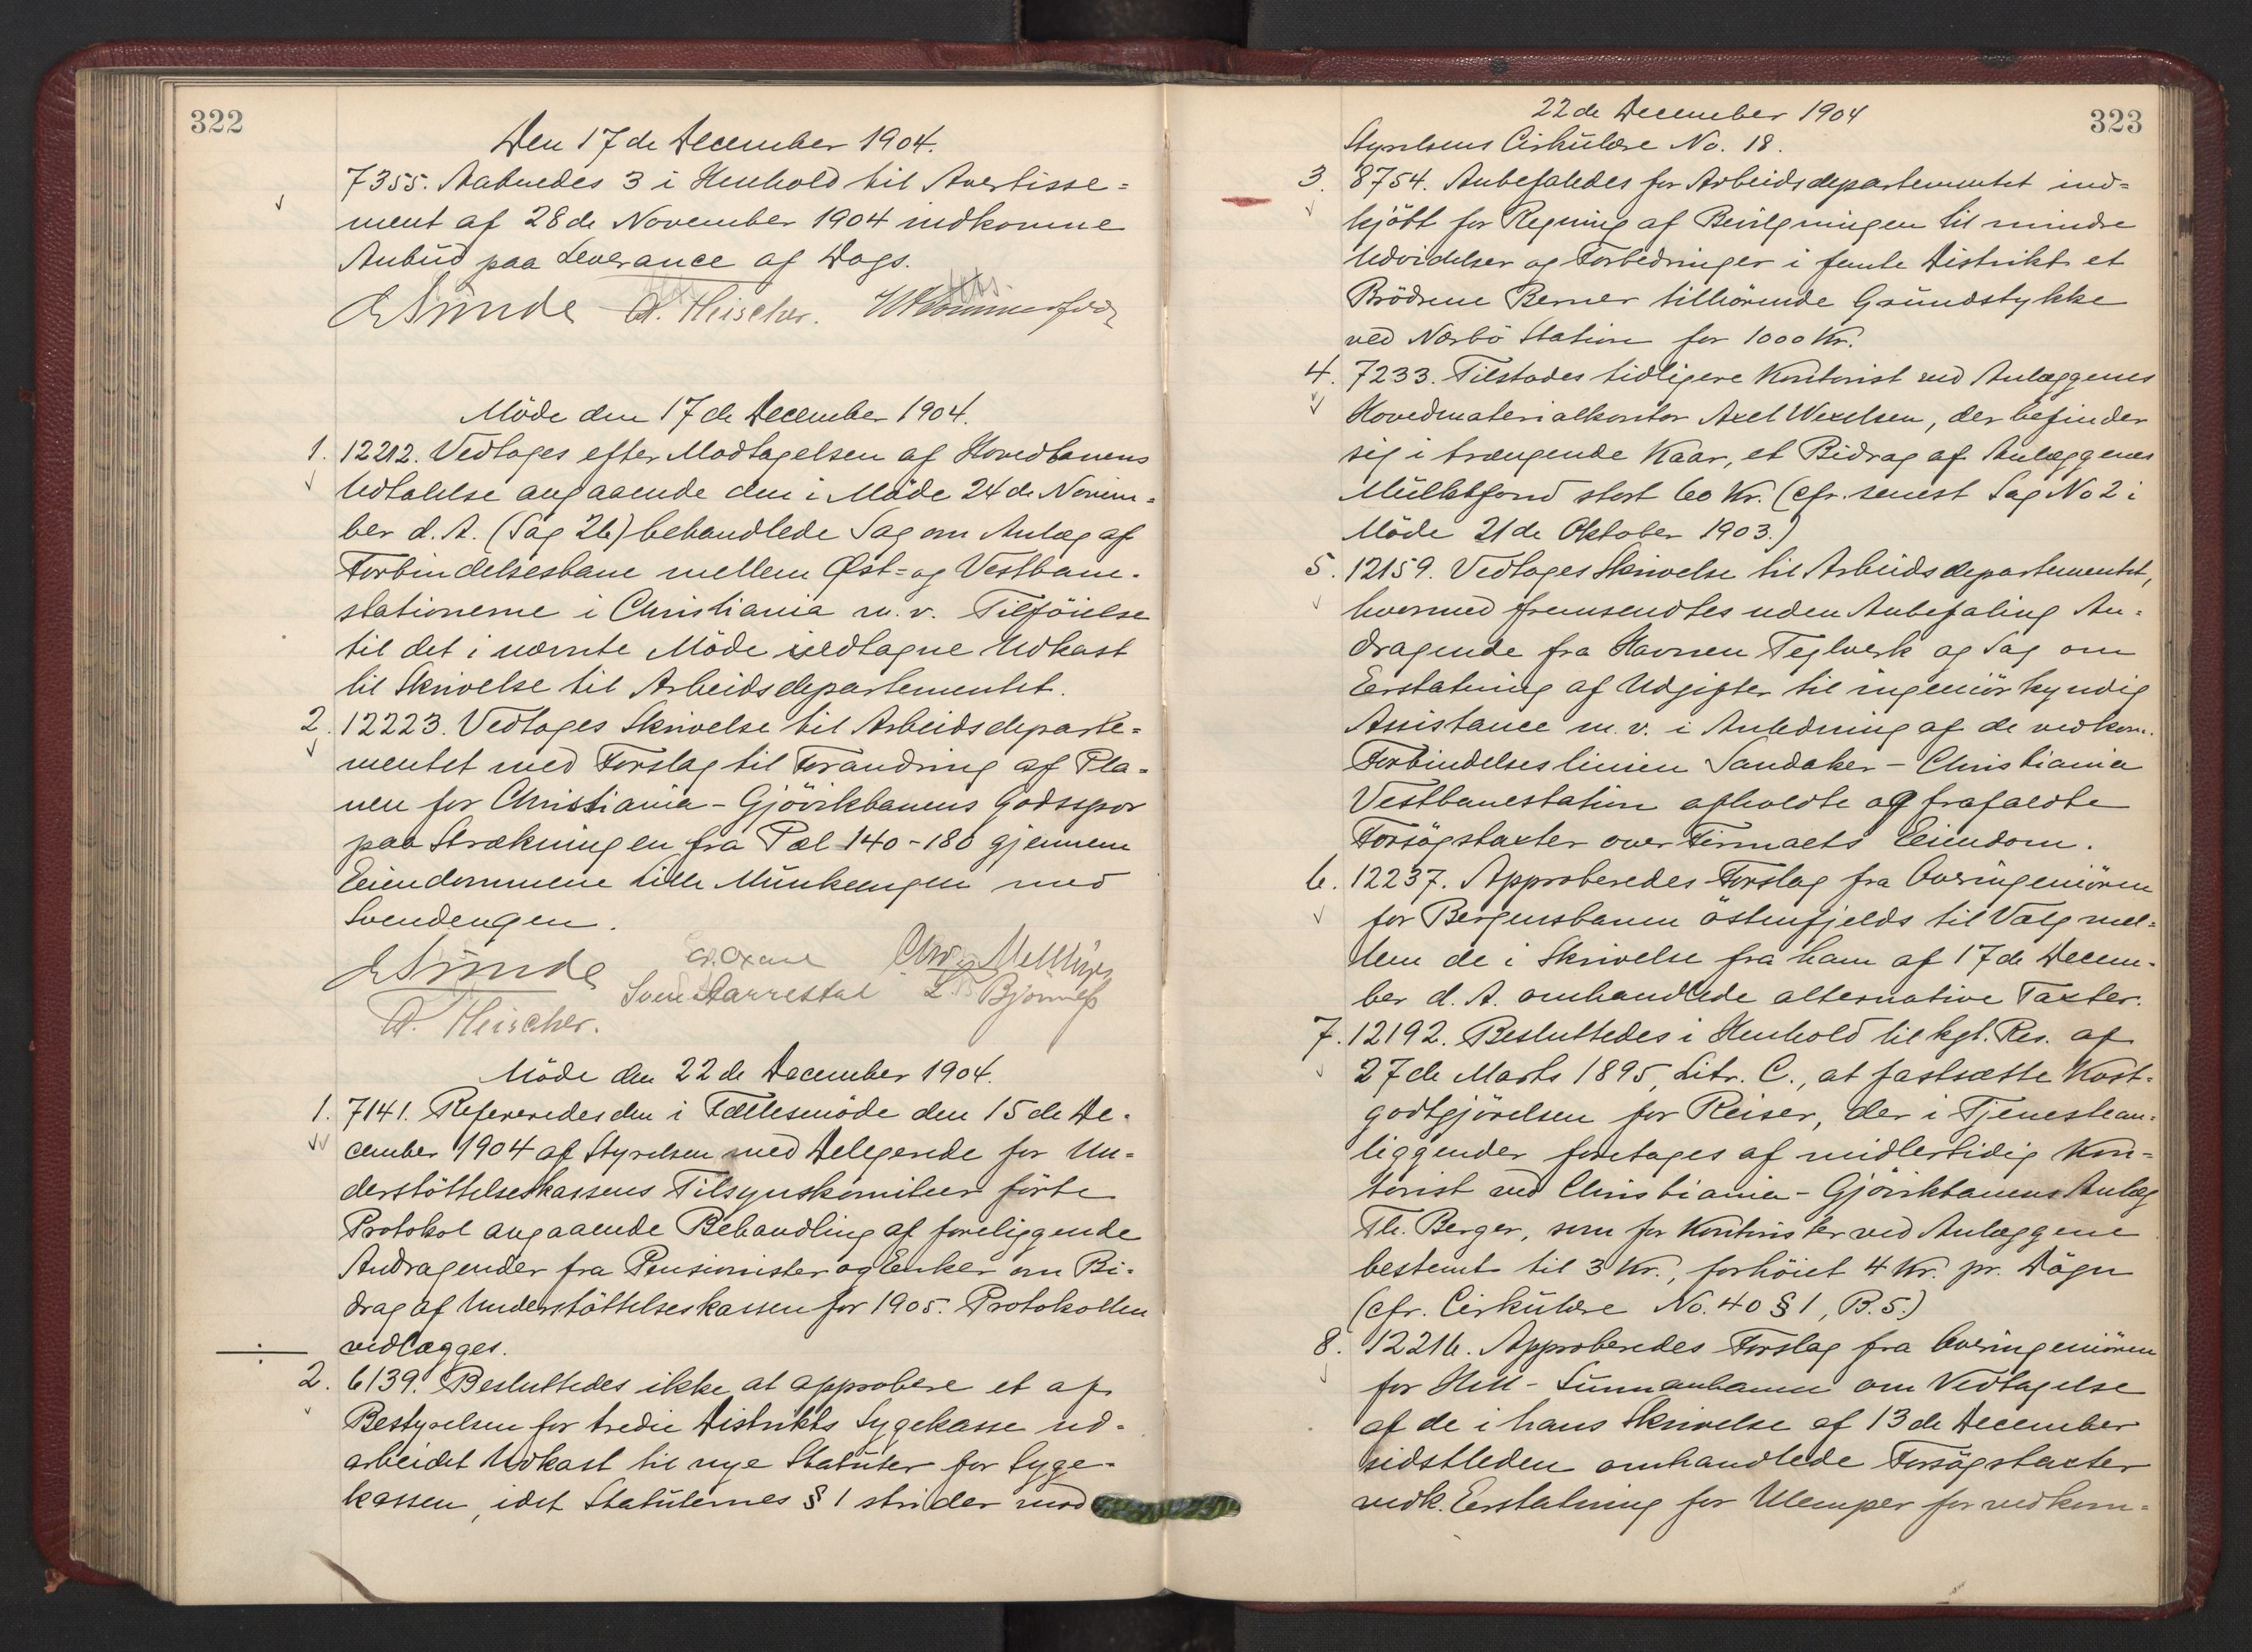 322
Den 17de December 1904.
7355. Aabnedes 3 i Henhold til Avertisse=
ment af 28de November 1904 indkomne
Anbud paa Leverance af Dogs.
E Sunde A. Fleischer.
Möde den 17de December 1904.
1. 12212. Vedtoges efter Modtagelsen af Hovedbanens
Udtalelse angaaende den i Möde 24de Novem=
ber d. A. (Sag 26) behandlede Sag om Anlæg af
Forbindelsesbane mellem Øst= og Vestbane-
stationerne i Christiania m. v. Tilföielse
til det i nævnte Möde vedtagne Udkast
til Skrivelse til Arbeidsdepartementet.
2. 12223. Vedtoges Skrivelse til Arbeidsdeparte=
mentet med Forslag til Forandring af Pla=
nen for Christiania-Gjövikbanens Godsspor
paa Strækningen fra Pæl 140-180 gjennem
Eiendommene Lille Munkeengen med
Svendengen.
E Sunde
Sven Aarrestad L. Bjørnnæss
A. Fleischer.
Möde den 22de December 1904.
1. 7141. Refereredes den i Fællesmöde den 15de De-
cember 1904 af Styrelsen med Delegerede for Un=
derstöttelseskassens Tilsynskomiteer förte
Protokol angaaende Behandling af foreliggende
Andragender fra Pensionister og Enker om Bi-
drag af Understöttelseskassen for 1905. Protokollen
vedlægges.
2. 6139. Besluttedes ikke at approbere et af
Bestyrelsen for tredie Distrikts Sygekasse ud-
arbeidet Udkast til nye Statuter for Syge-
kassen, idet Statuternes § 1 strider mod
22de December 1904
323
Styrelsens Cirkulære No. 18.
3. 8754. Anbefaledes for Arbeidsdepartementet ind=
kjöbt for Regning af Bevilgningen til mindre
Udvidelser og Forbedringer i femte Distrikt et
Brödrene Berner tilhörende Grundstykke
ved Nærbö Station for 1000 Kr.
4. 7233. Tilstodes tidligere Kontorist ved Anlæggenes
Hovedmaterialkontor Axel Wexelsen, der befinder
sig i trængende Kaar, et Bidrag af Anlæggenes
Mulktfond stort 60 Kr. (cfr. senest Sag No 2 i
Möde 21de Oktober 1903.)
5. 12159. Vedtoges Skrivelse til Arbeidsdepartementet,
hvormed fremsendtes uden Anbefaling An=
dragende fra Havnen Teglverk og Sag om
Erstatning af Udgifter til ingeniörkyndig
Assistance m. v. i Anledning af de vedkom.
Forbindelseslinien Sandaker-Christiania
Vestbanestation afholdte og frafaldte
Forsögstaxter over Firmaets Eiendom.
6. 12237. Approberedes Forslag fra Overingeniören
for Bergensbanen östenfjelds til Valg mel=
lem de i Skrivelse fra ham af 17de Decem-
ber d. A. omhandlede alternative Taxter.
7. 12192. Besluttedes i Henhold til kgl. Res. af
27de Marts 1895, Litr. C., at fastsætte Kost-
godtgjörelsen for Reiser, der i Tjenestean-
liggender foretages af midlertidig Kon=
torist ved Christiania-Gjövikbanens Anlæg
Th. Berger, som for Kontorister ved Anlæggene
bestemt til 3 Kr., forhöiet 4 Kr. pr. Dögn
(cfr. Cirkulære No. 40 § 1, B. 5.)
8. 12216. Approberedes Forslag fra Overingeniören
for Hell-Sunnanbanen om Vedtagelse
af de i hans Skrivelse af 13de December
sidstleden omhandlede Forsögstaxter
vedk. Erstatning for Ulemper for vedkom=